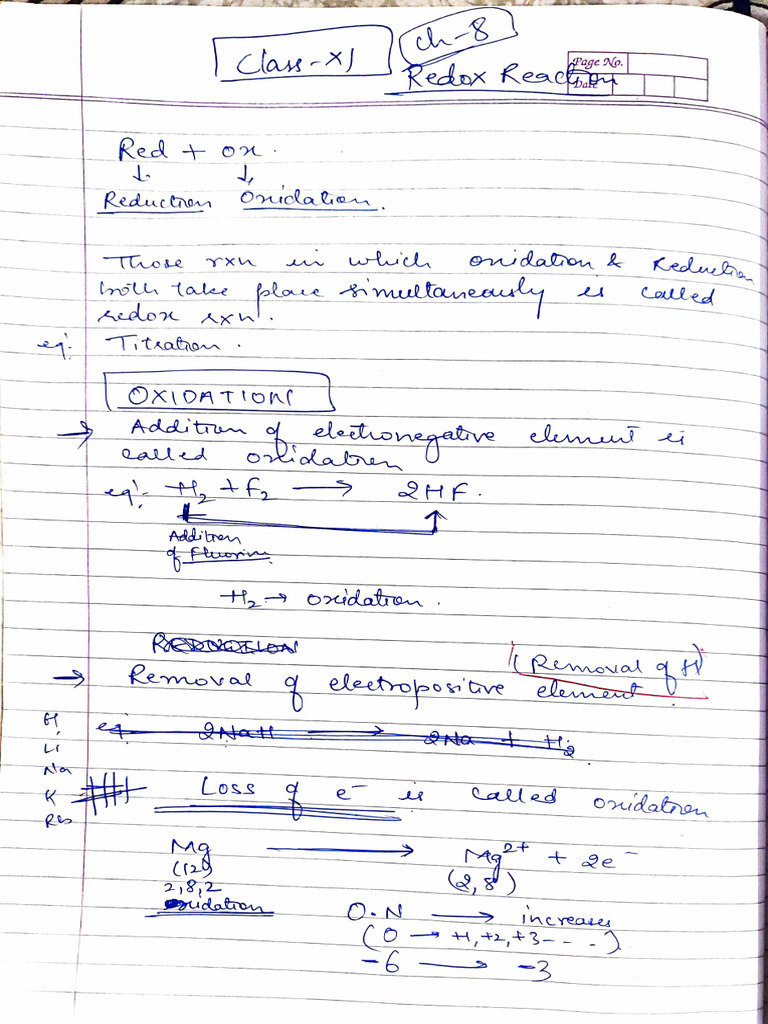 Class-XI
Ch-8
Page No.
Date
Redox Reaction
Red + ox.
↓ ↓
Reduction Oxidation.
Those rxn in which oxidation & Reduction
both take place simultaneously is called
redox rxn.
eg:- Titration.
OXIDATION
→ Addition of electronegative element is
called oxidation
eg:- H₂ + F₂ → 2HF.
Addition
of Fluorine
H₂ → oxidation.
REDUCTION
(Removal of H)
→ Removal of electropositive element.
eg:- 2NaH → 2Na + H₂
H
Li
Na
K
Rb
Loss of e⁻ is called oxidation
Mg → Mg²⁺ + 2e⁻
(12) (2,8)
2,8,2
Oxidation
O.N → increases
(0 → +1, +2, +3 - - - .)
-6 → -3